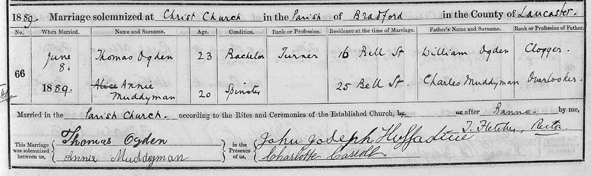 1889. Marriage solemnized at Christ Church in the Parish of Bradford in the County of Lancaster.
No. When Married. Name and Surname. Age. Condition. Rank or Profession. Residence at the time of Marriage. Father's Name and Surname. Rank or Profession of Father.
66 June 8. 1889. Thomas Ogden 23 Bachelor Turner 16 Bell St. William Ogden Clogger.
Alice Annie Muddyman 20 Spinster 25 Bell St. Charles Muddyman Overlooker.
Married in the Parish Church. according to the Rites and Ceremonies of the Established Church, by or after Banns by me,
J. Fletcher, Rector
This Marriage was solemnized between us, Thomas Ogden Annie Muddyman in the Presence of us, John Joseph Charlotte